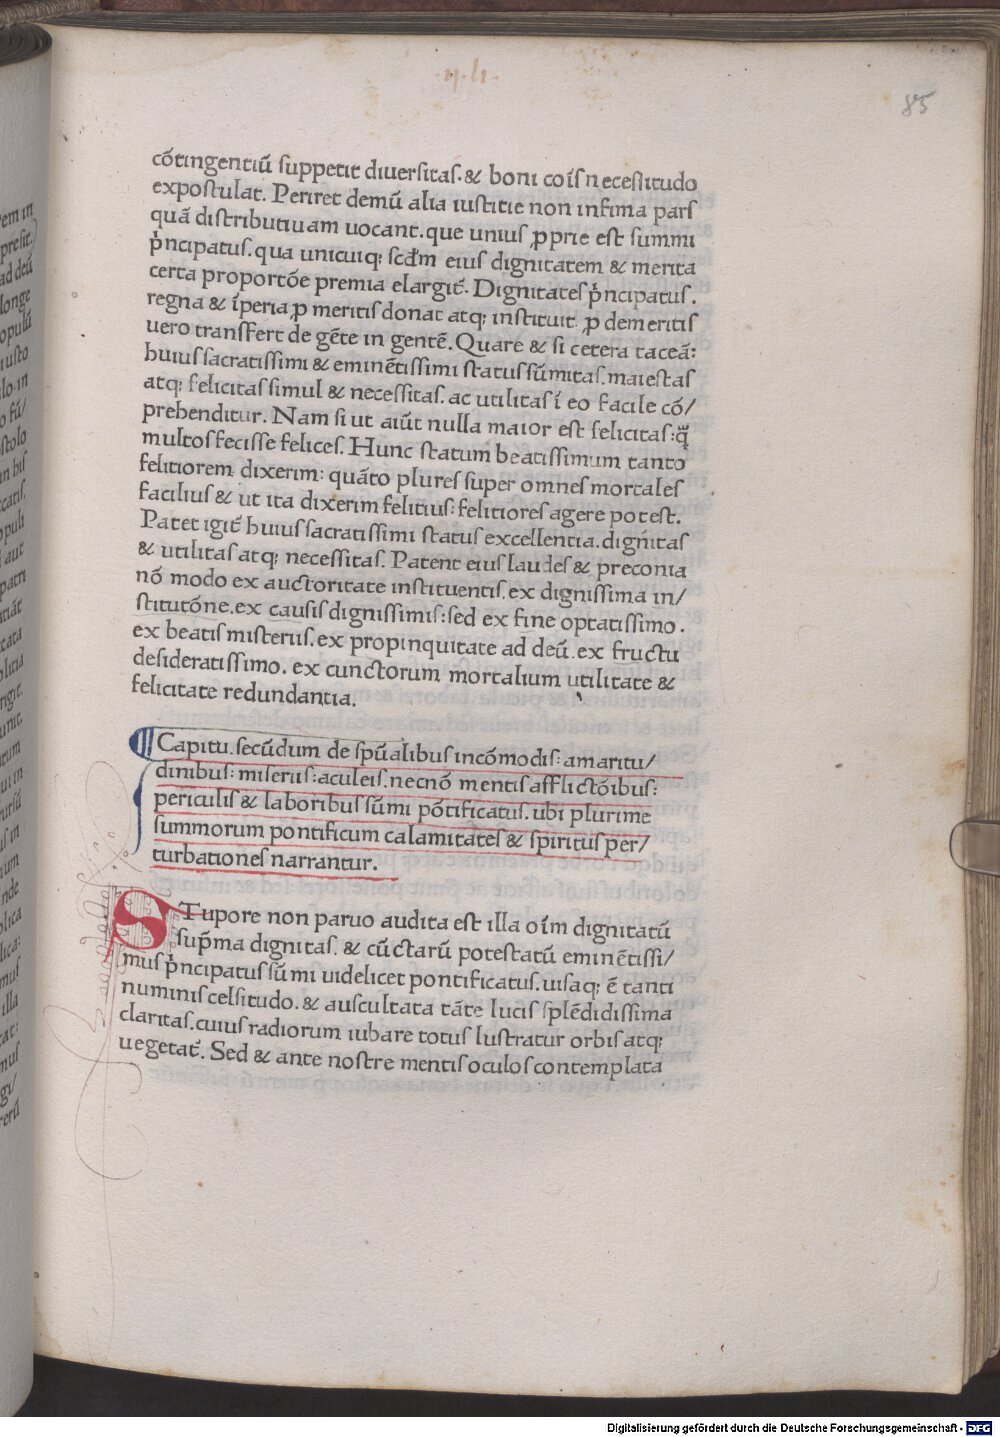 .ii.li.
85
cōtingentiū suppetit diuersitas. & boni cōis necessitudo
expostulat. Periret demū alia iustitie non infima pars
quā distributiuam uocant. que unius ꝓprie est summi
p̄ncipatus. qua unicuiqꝫ scd̄m eius dignitatem & merita
certa proportōe premia elargit̄. Dignitates p̄ncipatus.
regna & īperia ꝓ meritis donat atqꝫ instituit. ꝓ demeritis
uero transfert de gēte in gentē. Quare & si cetera taceā:
huius sacratissimi & eminētissimi status sūmitas. maiestas
atqꝫ felicitas simul & necessitas. ac utilitas ī eo facile cō/
prehenditur. Nam si ut aiūt nulla maior est felicitas: q̄
multos fecisse felices. Hunc statum beatissimum tanto
felitiorem dixerim: quāto plures super omnes mortales
facilius & ut ita dixerim felitius: felitiores agere potest.
Patet igit̄ huius sacratissimi status excellentia. dign̄itas
& utilitas atqꝫ necessitas. Patent eius laudes & preconia
nō modo ex auctoritate instituentis. ex dignissima in/
stitutōne. ex causis dignissimis: sed ex fine optatissimo.
ex beatis misteriis. ex propinquitate ad deū. ex fructu
desideratissimo. ex cunctorum mortalium utilitate &
felicitate redundantia.
Capitu. secūdum de spūalibus incōmodis: amaritu/
dinibus: miseriis: aculeis. necnō mentis afflictōibus:
periculis & laboribus sūmi pōtificatus. ubi plurime
summorum pontificum calamitates & spiritus per/
turbationes narrantur.
STupore non paruo audita est illa oīm dignitatū
sup̄ma dignitas. & cūctarū potestatū eminētissi/
mus p̄ncipatus sūmi uidelicet pontificatus. uisaqꝫ ē tanti
numinis celsitudo. & auscultata tāte lucis splēdidissima
claritas. cuius radiorum iubare totus lustratur orbis atqꝫ
uegetat̄. Sed & ante nostre mentis oculos contemplata
Digitalisierung gefördert durch die Deutsche Forschungsgemeinschaft - DFG